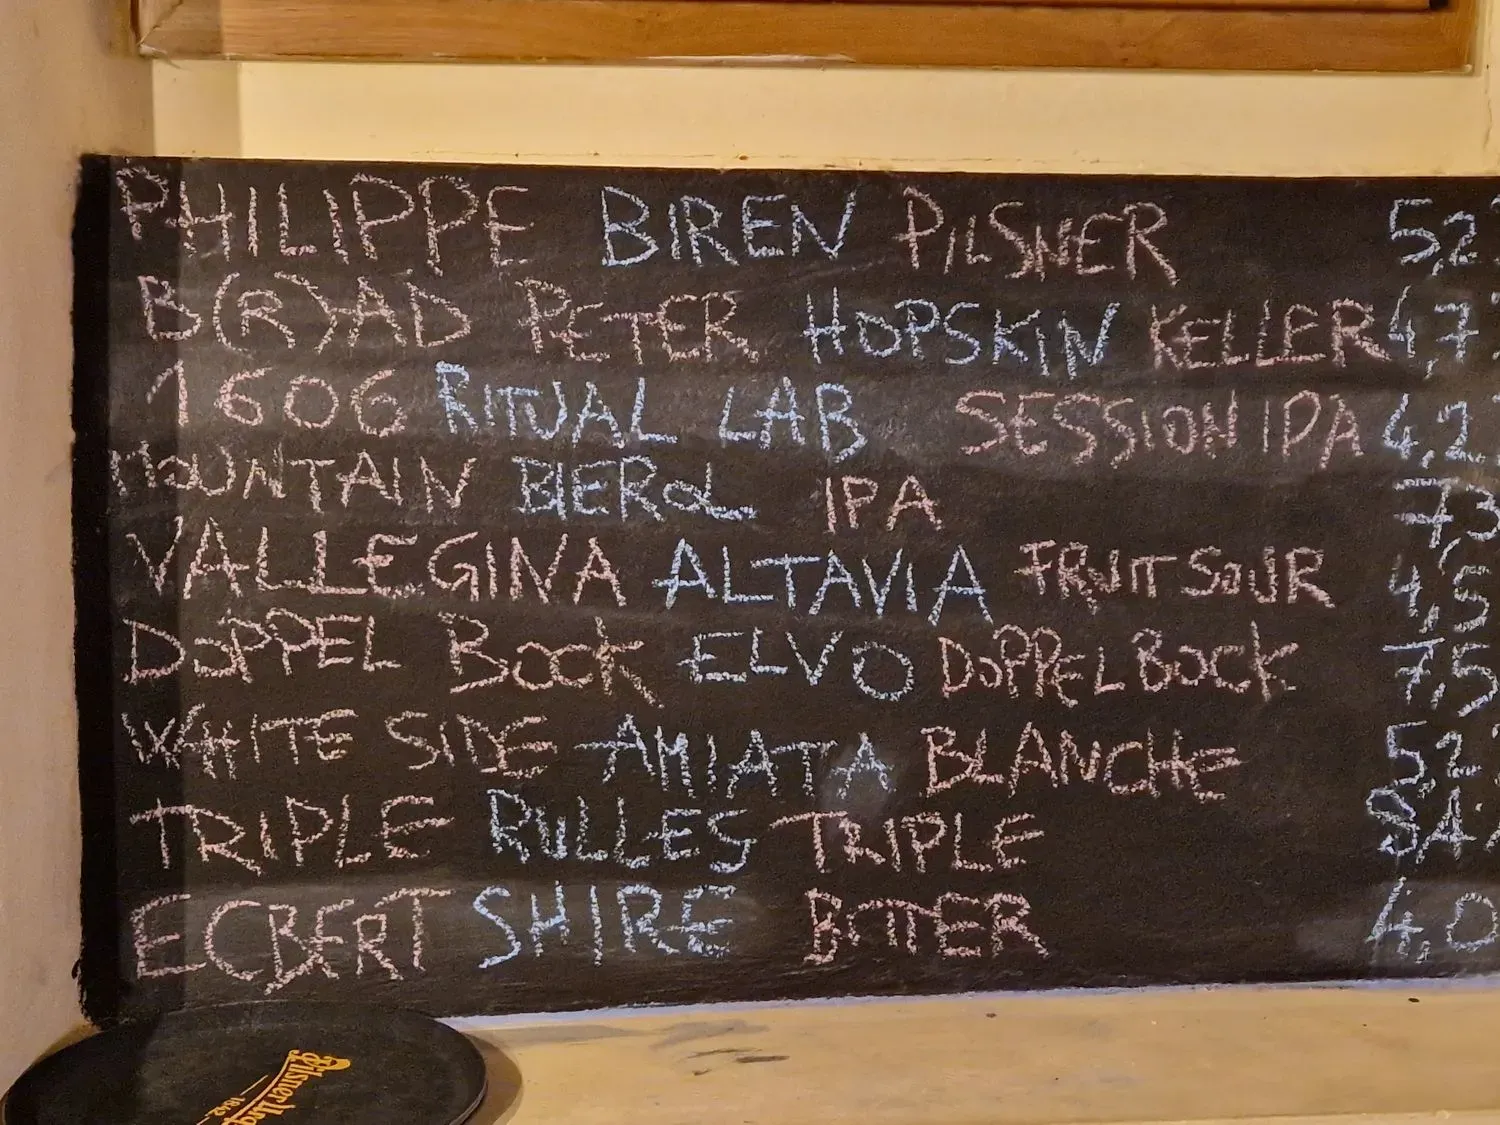 PHILIPPE BIREN PILSNER 5,2
B(R)AD PETER HOPSKIN KELLER 4,7
1606 RITUAL LAB SESSION IPA 4,2
MOUNTAIN BIEROL IPA 7,3
VALLEGINA ALTAVIA FRUIT SOUR 4,5
DOPPEL BOCK ELVO DOPPELBOCK 7,5
WHITE SIDE AMIATA BLANCHE 5,2
TRIPLE RULLES TRIPLE 8,4
ECBERT SHIRE BITTER 4,0
Pilsner
1842